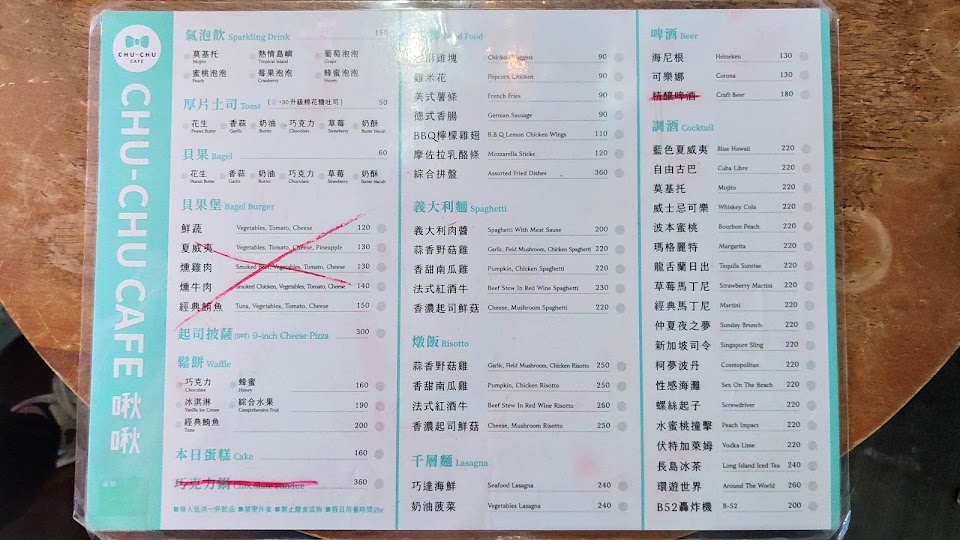 CHU-CHU
CAFE
CHU-CHU CAFE 啾啾
氣泡飲 Sparkling Drink 150
莫基托 熱情島嶼 葡萄泡泡
Mojito Tropical Island Grape
蜜桃泡泡 莓果泡泡 蜂蜜泡泡
Peach Cranberry Honey
厚片土司 Toast (+30升級棉花糖吐司) 50
花生 香蒜 奶油 巧克力 草莓 奶酥
Peanut Butter Garlic Butter Chocolate Strawberry Butter biscuit
貝果 Bagel 60
花生 香蒜 奶油 巧克力 草莓 奶酥
Peanut Butter Garlic Butter Chocolate Strawberry Butter biscuit
貝果堡 Bagel Burger
鮮蔬 Vegetables, Tomato, Cheese 120
夏威夷 Vegetables, Tomato, Cheese, Pineapple 130
燻雞肉 Smoked Beef, Vegetables, Tomato, Cheese 130
燻牛肉 Smoked Chicken, Vegetables, Tomato, Cheese 140
經典鮪魚 Tuna, Vegetables, Tomato, Cheese 150
起司披薩(9吋) 9-inch Cheese Pizza 300
鬆餅 Waffle
巧克力 蜂蜜 160
Chocolate Honey
冰淇淋 綜合水果 190
Vanilla Ice Cream Comprehensive Fruit
經典鮪魚 200
Tuna
本日蛋糕 Cake 160
巧克力鍋 360
■每人低消一杯飲品 ■禁帶外食 ■禁止餵食店狗 ■假日用餐時間2hr
Food
雞塊 Chicken Nuggets 90
雞米花 Popcorn Chicken 90
美式薯條 French Fries 90
德式香腸 German Sausage 90
BBQ檸檬雞翅 B.B.Q Lemon Chicken Wings 110
摩佐拉乳酪條 Mozzarella Sticks 120
綜合拼盤 Assorted Fried Dishes 360
義大利麵 Spaghetti
義大利肉醬 Spaghetti With Meat Sause 200
蒜香野菇雞 Garlic, Field Mushroom, Chicken Spaghetti 220
香甜南瓜雞 Pumpkin, Chicken Spaghetti 220
法式紅酒牛 Beef Stew In Red Wine Spaghetti 230
香濃起司鮮菇 Cheese, Mushroom Spaghetti 220
燉飯 Risotto
蒜香野菇雞 Garlic, Field Mushroom, Chicken Risotto 250
香甜南瓜雞 Pumpkin, Chicken Risotto 250
法式紅酒牛 Beef Stew In Red Wine Risotto 260
香濃起司鮮菇 Cheese, Mushroom Risotto 250
千層麵 Lasagna
巧達海鮮 Seafood Lasagna 240
奶油菠菜 Vegetables Lasagna 240
啤酒 Beer
海尼根 Heineken 130
可樂娜 Corona 130
精釀啤酒 Craft Beer 180
調酒 Cocktail
藍色夏威夷 Blue Hawaii 220
自由古巴 Cuba Libre 220
莫基托 Mojito 220
威士忌可樂 Whiskey Cola 220
波本蜜桃 Bourbon Peach 220
瑪格麗特 Margarita 220
龍舌蘭日出 Tequila Sunrise 220
草莓馬丁尼 Strawberry Martini 220
經典馬丁尼 Martini 220
仲夏夜之夢 Sunday Brunch 220
新加坡司令 Singapore Sling 220
柯夢波丹 Cosmopolitan 220
性感海灘 Sex On The Beach 220
螺絲起子 Screwdriver 220
水蜜桃撞擊 Peach Impact 220
伏特加萊姆 Vodka Lime 220
長島冰茶 Long Island Iced Tea 240
環遊世界 Around The World 260
B52轟炸機 B-52 200